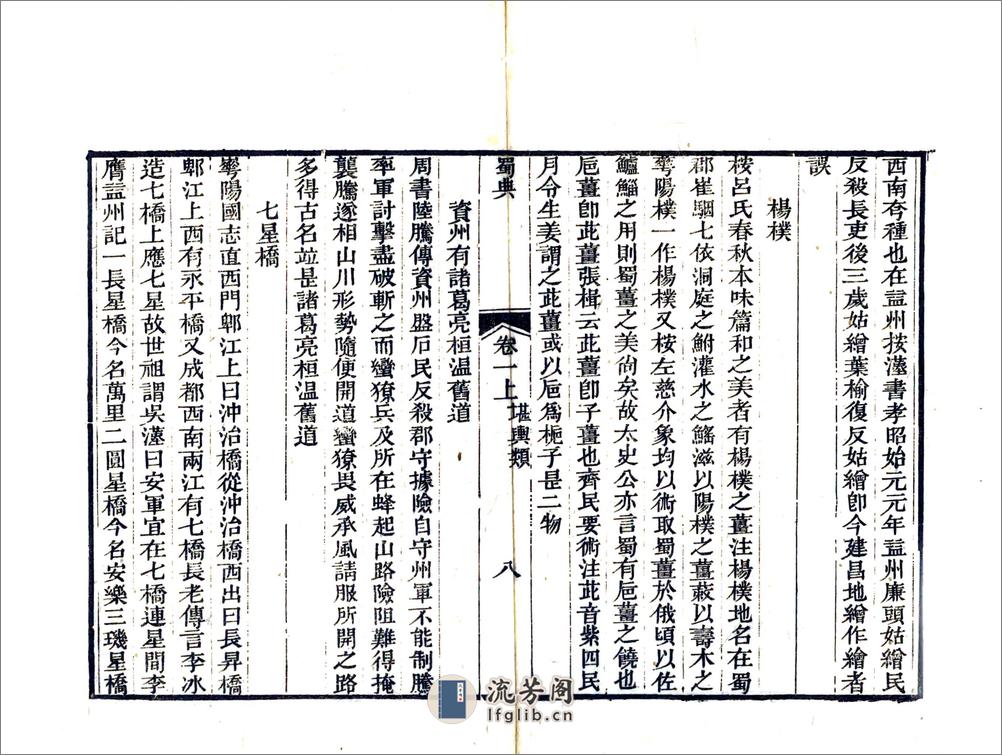 西南夸種也在益州按漢書孝昭始元元年益州廉頭姑繒民
反殺長吏後三歲姑繒葉榆復反姑繒卽今建昌地繒作繪者
誤
楊樸
桉呂氏春秋本味篇和之美者有楊樸之薑注楊樸地名在蜀
郡崔駰七依洞庭之鮒灌水之鰩滋以陽樸之薑蔌以壽木之
蕚陽樸一作楊樸又桉左慈介象均以術取蜀薑於俄頃以佐
鱸鯔之用則蜀薑之美尙矣故太史公亦言蜀有巵薑之饒也
巵薑卽此薑張楫云此薑卽子薑也齊民要術注此音紫四民
月令生姜謂之此薑或以巵爲梔子是二物
蜀典
卷一上
堪輿類
八
資州有諸葛亮桓溫舊道
周書陸騰傳資州盤石民反殺郡守據險自守州軍不能制騰
率軍討擊盡破斬之而蠻獠兵及所在蜂起山路險阻難得掩
襲騰遂相山川形勢隨便開道蠻獠畏威承風請服所開之路
多得古名竝是諸葛亮桓溫舊道
七星橋
華陽國志直西門郫江上曰沖治橋從沖治橋西出曰長昇橋
郫江上西有永平橋又成都西南兩江有七橋長老傳言李冰
造七橋上應七星故世祖謂吳漢曰安軍宜在七橋連星間李
膺益州記一長星橋今名萬里二圓星橋今名安樂三璣星橋
流芳阁
lfglib.cn